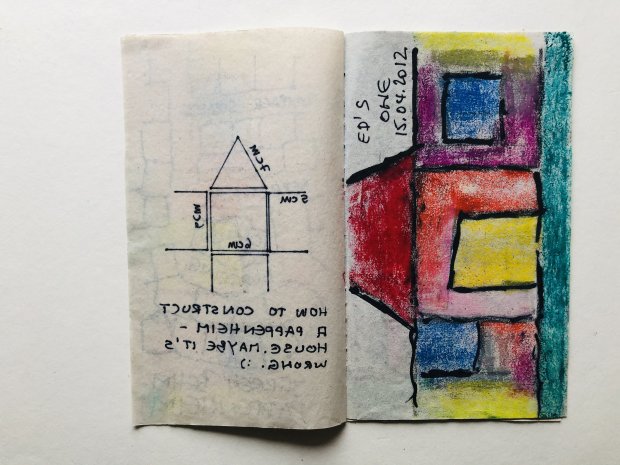 7CM
5CM
6CM
HOW TO CONSTRUCT
A PAPPENHEIM -
HOUSE. MAYBE IT'S
WRONG. :)
ED'S
ONE
15.04.2012